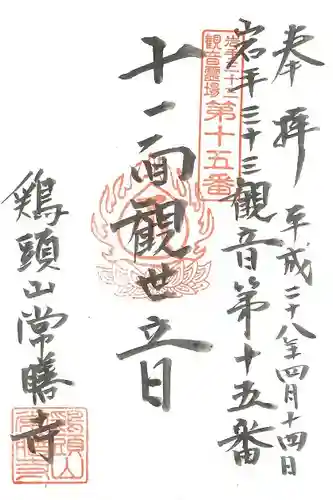 奉拝
平成二十八年四月十四日
岩手三十三観音第十五番
岩手三十三
観音霊場
第十五番
十一面観世音
鶏頭山常勝寺
鶏頭山
常勝寺